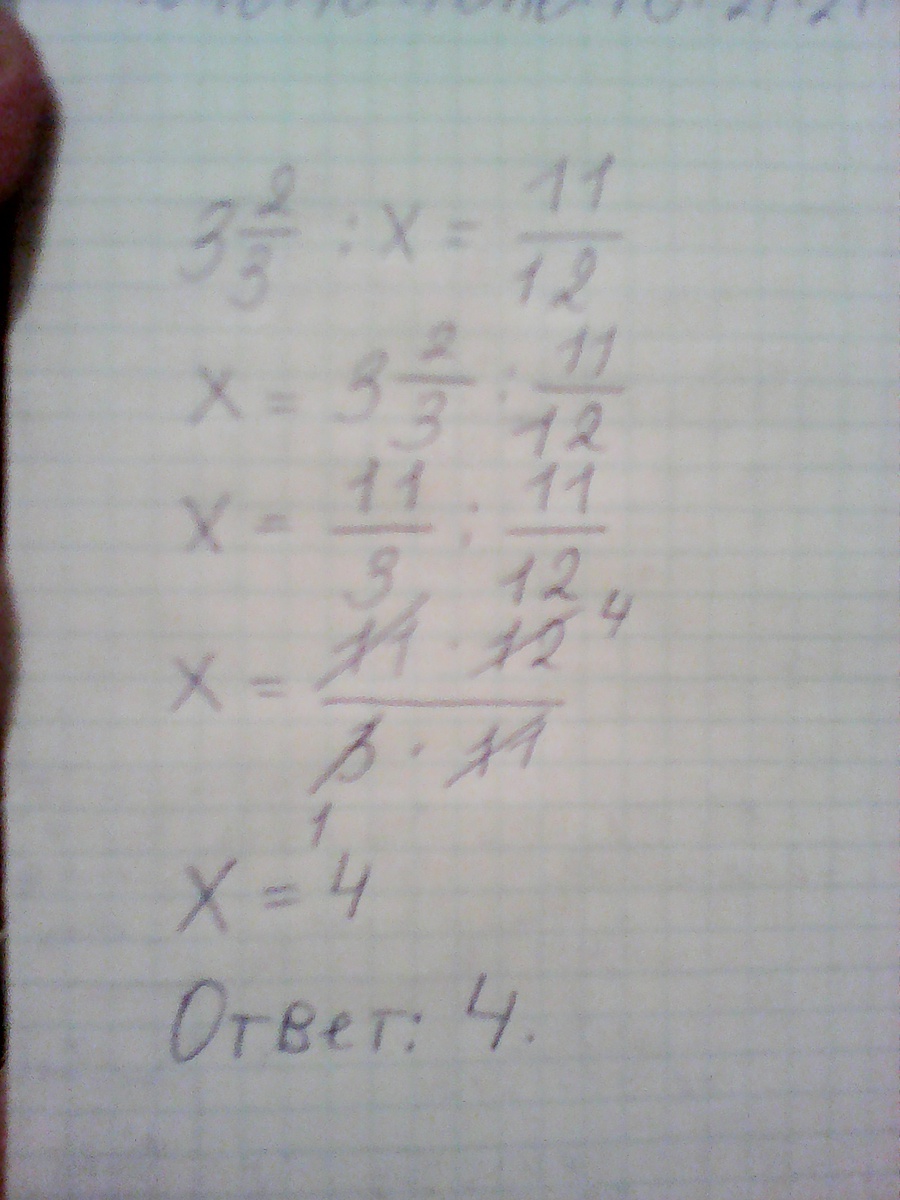 3 2/3 : x = 11/12
x = 3 2/3 : 11/12
x = 11/3 : 11/12
x = 11 · 12 4 / 3 · 11
1
x = 4
Ответ: 4.